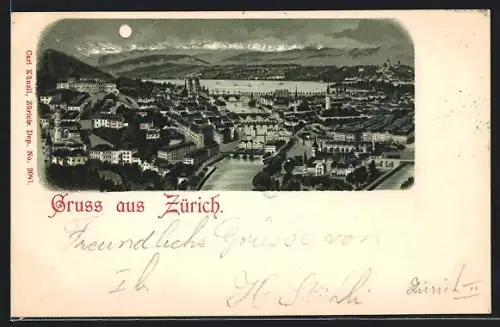 Carl Künzli, Zürich. Dep. No. 3061.
Gruss aus Zürich.
Freundliche Grüsse von
Ib. H
Zürich II